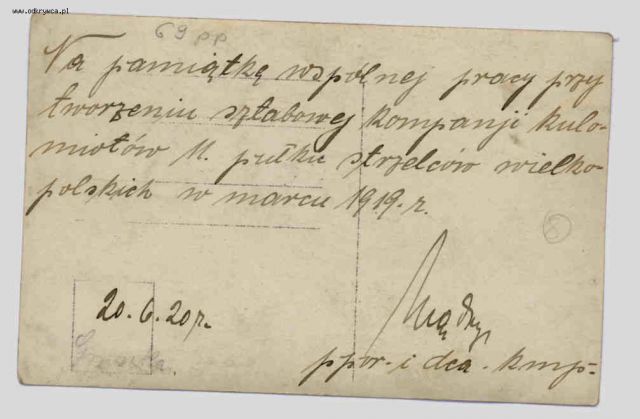 www.odkrywca.pl
69 pp
Na pamiątkę wspólnej pracy przy
tworzeniu sztabowej kompanji kulo-
miotów 11. pułku strzelców wielko-
polskich w marcu 1919.r.
8
20.6.20r.
Mądry
ppor. i dca. kmp.